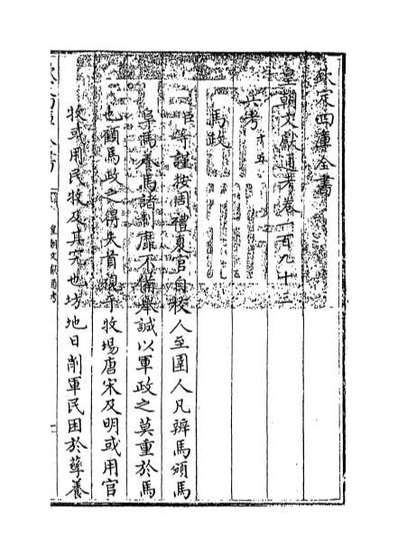 欽定四庫全書
皇朝文獻通考卷一百九十三
兵考十五
馬政
臣等謹按周禮夏官自牧人至圉人凡辨馬頒馬
芻禡養馬諸制靡不備舉誠以軍政之莫重於馬
也顧馬政之得失首視乎牧場唐宋及明或用官
牧或用民牧及其究也場地日削軍民困於孳養